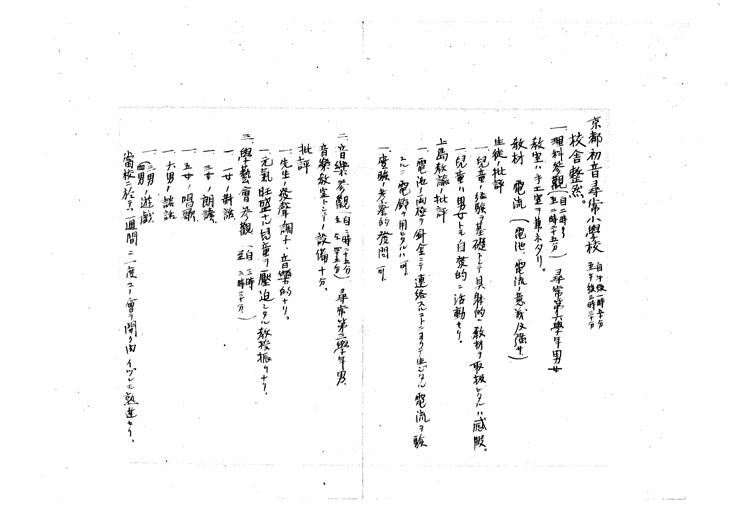 京都初音尋常小學校 自午後一時五十分 至午後三時二十分
校舎整然。
一、理科參觀(自二時 至二時三十五分) 尋常第六學年男女
教室ハ手工室ヲ兼ネタリ。
教材 電流(電池、電流ノ意義及強サ)
生徒ノ批評
一、兒童ノ経験ヲ基礎トシテ具躰的ノ教材ヲ取扱ヒタルハ感服。
一、兒童ハ男女トモ自發的ニ活動セリ。
上島教諭ノ批評
一、電池ノ兩極ヲ針金ニテ連絡スルコトニヨリテ生ジタル電流ヲ驗
スルニ電鈴ヲ用ヒタルハ可。
一、實驗ノ考案的發問可。
二、音樂參觀 尋常第三學年男
音樂教室トシテノ設備十分。
批評
一、先生ノ發聲調子、音樂的ナリ。
一、元氣旺盛ナル兒童ヲ壓迫シタル教授振リナリ。
三、學藝會參觀(自三時 至三時二十分)
一、一女ノ對話
一、三女ノ朗讀
一、五女ノ唱歌
一、六男ノ談話
一、二男ノ遊戯
當校ニ於テハ一週間ニ一度コノ會ヲ開ク由イヅレモ熟達セリ。